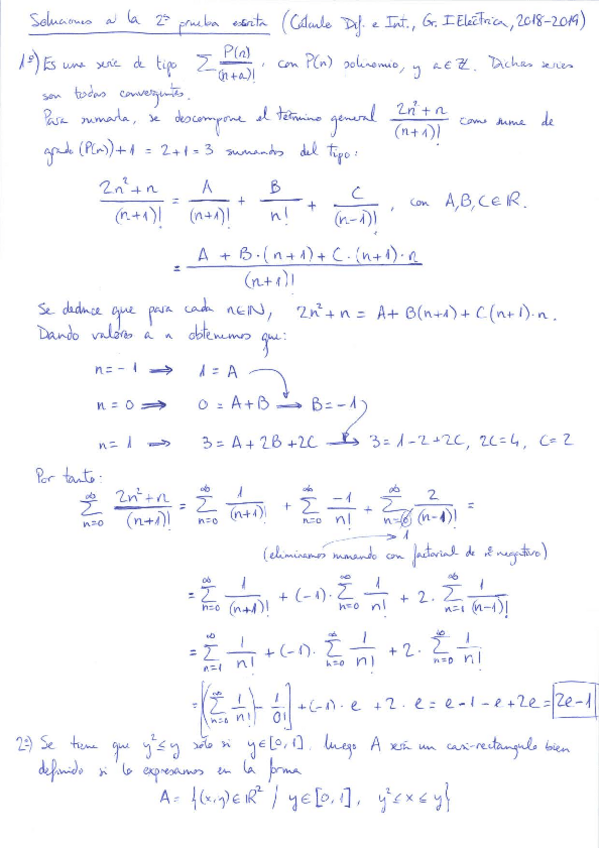 Soluciones a la 2ª prueba escrita (Cálculo Dif. e Int., Gr. I Eléctrica, 2018-2019)
1º) Es una serie de tipo ∑ P(n)/(n+a)!, con P(n) polinomio, y a∈ℤ. Dichas series
son todas convergentes.
Para sumarla, se descompone el término general (2n²+n)/(n+1)! como suma de
grado(P(n))+1 = 2+1 = 3 sumandos del tipo:
(2n²+n)/(n+1)! = A/(n+1)! + B/n! + C/(n-1)!, con A,B,C∈ℝ.
= (A + B·(n+1) + C·(n+1)·n)/(n+1)!
Se deduce que para cada n∈ℕ, 2n²+n = A+B(n+1)+C(n+1)·n.
Dando valores a n obtenemos que:
n=-1 ⟹ 1 = A
n=0 ⟹ 0 = A+B → B=-1
n=1 ⟹ 3 = A+2B+2C → 3=1-2+2C, 2C=4, C=2
Por tanto:
∑_{n=0}^{∞} (2n²+n)/(n+1)! = ∑_{n=0}^{∞} 1/(n+1)! + ∑_{n=0}^{∞} -1/n! + ∑_{n=0}^{∞} 2/(n-1)! =
1
(eliminamos sumando con factorial de nº negativo)
= ∑_{n=0}^{∞} 1/(n+1)! + (-1)·∑_{n=0}^{∞} 1/n! + 2·∑_{n=1}^{∞} 1/(n-1)!
= ∑_{n=1}^{∞} 1/n! + (-1)·∑_{n=0}^{∞} 1/n! + 2·∑_{n=0}^{∞} 1/n!
= [(∑_{n=0}^{∞} 1/n!) - 1/0!] + (-1)·e + 2·e = e-1-e+2e = 2e-1
2º) Se tiene que y²≤y sólo si y∈[0,1], luego A será un casi-rectángulo bien
definido si lo expresamos en la forma
A = {(x,y)∈ℝ² / y∈[0,1], y²≤x≤y}